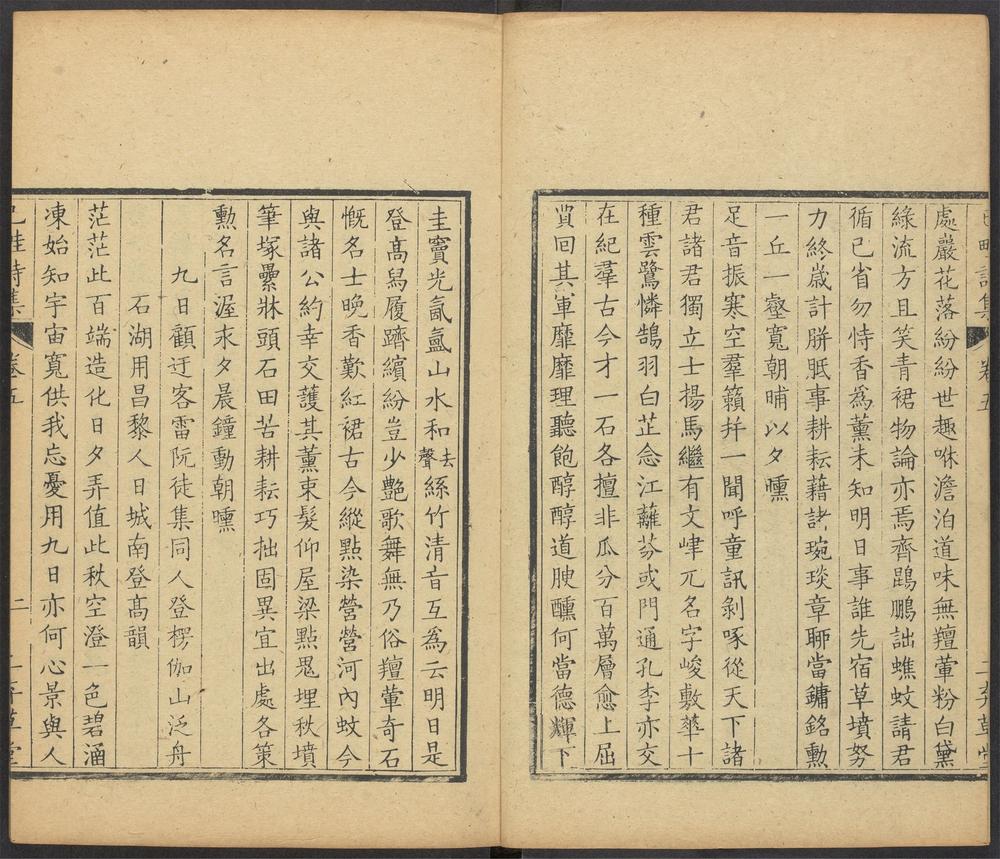 已畦詩集 卷五 二棄草堂
處巖花落紛紛世趣咻澹泊道味無羶葷粉白黛
綠流方且笑青裙物論亦焉齊鵾鵬詘蟭蚊請君
循已省勿恃香為薰未知明日事誰先宿草墳努
力終歲計胼胝事耕耘藉諸琬琰章聊當鏞銘勲
一丘一壑寬朝晡以夕曛
足音振寒空羣籟幷一聞呼童訊剝啄從天下諸
君諸君獨立士揚馬繼有文峍兀名字峻敷華十
種雲鷺憐鵠羽白芷念江蘺芬或門通孔李亦交
在紀羣古今才一石各擅非瓜分百萬層愈上屈
貲回其軍靡靡理聽飽醇醇道腴醺何當德輝下
圭竇光氤氳山水和去聲絲竹清音互為云明日是
登高舃履躋繽紛豈少艶歌舞無乃俗羶葷奇石
慨名士晚香歎紅裙古今縱點染營營河內蚊今
與諸公約幸交護其薰束髮仰屋梁點鬼埋秋墳
筆塚纍牀頭石田苦耕耘巧拙固異宜出處各策
勲名言渥末夕晨鐘動朝曛
九日顧迂客雷阮徒集同人登楞伽山泛舟
石湖用昌黎人日城南登高韻
茫茫此百端造化日夕弄值此秋空澄一色碧涵
凍始知宇宙寬供我忘憂用九日亦何心景與人
已畦詩集 卷五 二 二棄草堂